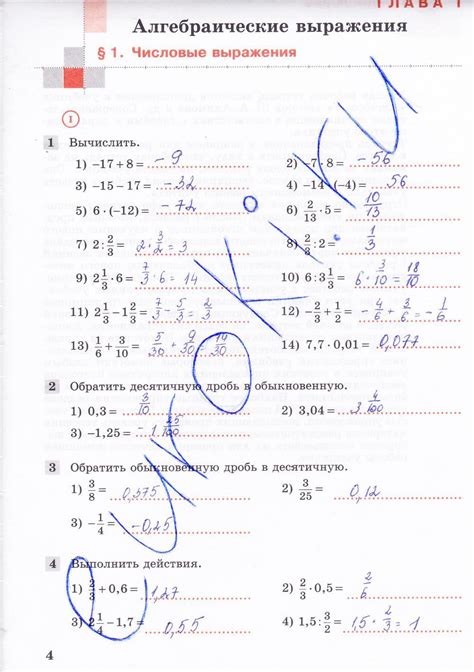 ГЛАВА I
Алгебраические выражения
§ 1. Числовые выражения
I
1 Вычислить.
1) −17 + 8 = − 9 2) −7 · 8 = − 56
3) −15 − 17 = − 32 4) −14 · (−4) = 56
5) 6 · (−12) = − 72 6) 2/13 · 5 = 10/13
7) 2 : 2/3 = 2 · 3/2 = 3 8) 2/3 : 2 = 1/3
9) 2 1/3 · 6 = 7/3 · 6 = 14 10) 6 : 3 1/3 = 6 · 3/10 = 18/10
11) 2 1/3 − 1 2/3 = 7/3 − 5/3 = 2/3 12) −2/3 + 1/2 = − 4/6 + 3/6 = − 1/6
13) 1/6 + 3/10 = 5/30 + 9/30 = 14/30 14) 7,7 · 0,01 = 0,077
2 Обратить десятичную дробь в обыкновенную.
1) 0,3 = 3/10 2) 3,04 = 3 4/100
3) −1,25 = − 1 25/100
3 Обратить обыкновенную дробь в десятичную.
1) 3/8 = 0,375 2) 3/25 = 0,12
3) −1/4 = − 0,25
4 Выполнить действия.
1) 2/3 + 0,6 = 1,27 2) 2/3 · 0,5 = 2/6
3) 2 1/4 − 1,7 = 0,55 4) 1,5 : 3/2 = 1,5 · 2/3 = 1
4